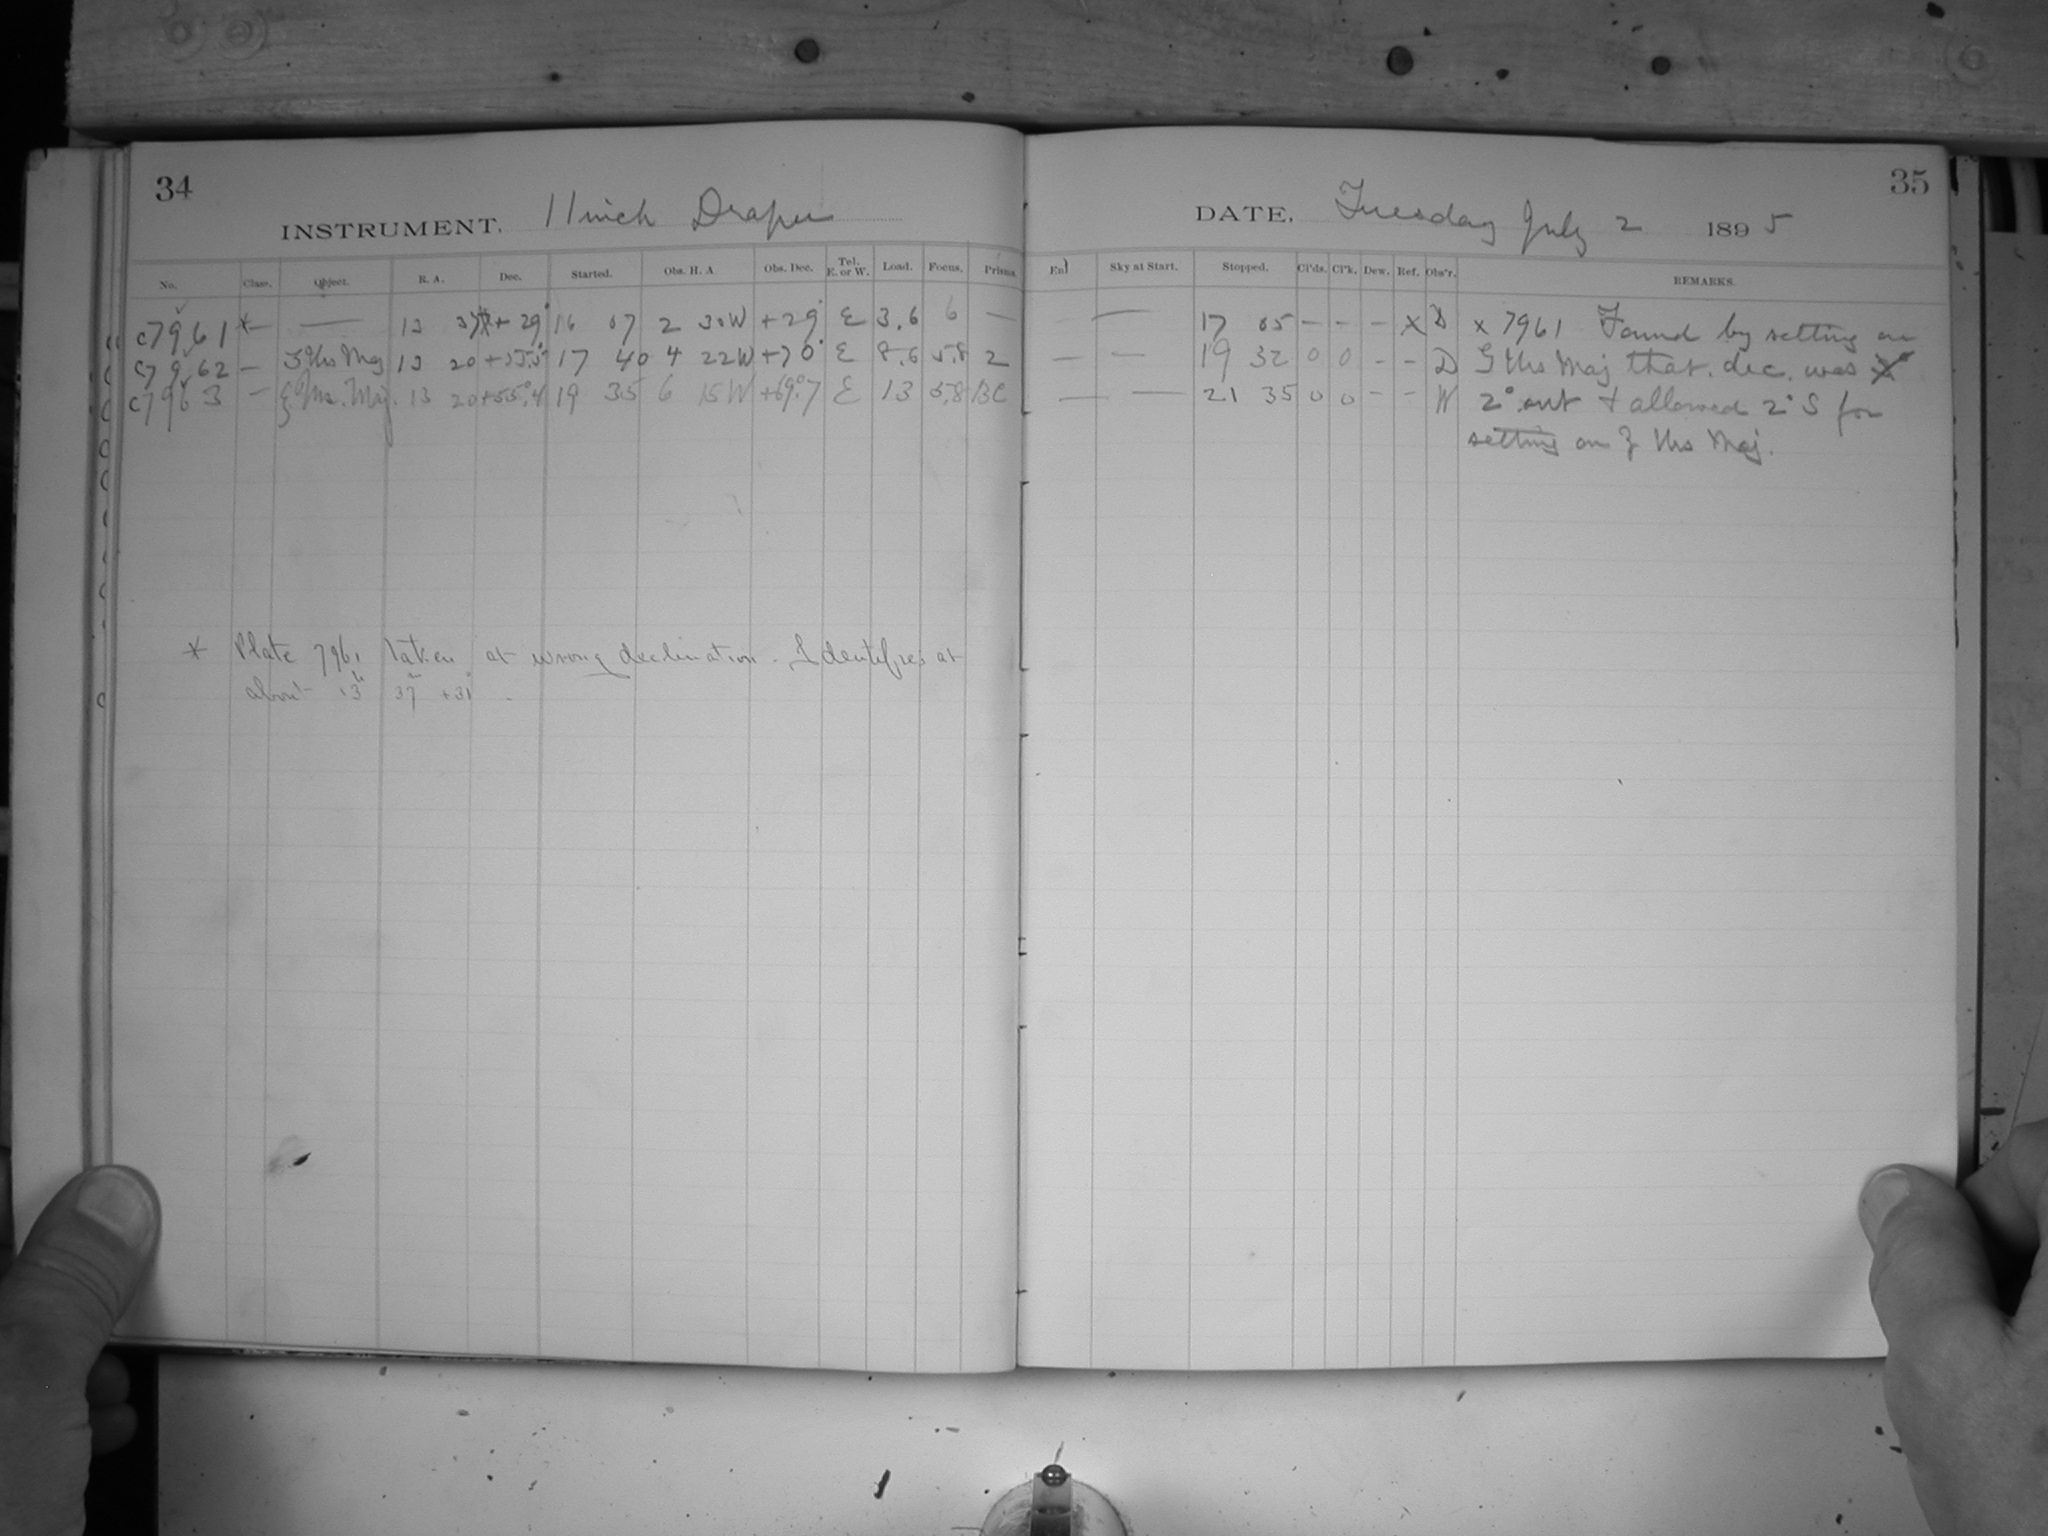 34
INSTRUMENT. 11 inch Draper
No. Class. Object. R. A. Dec. Started. Obs. H. A Obs. Dec. Tel. E. or W. Load. Focus. Prisms.
c7961 * — 13 37 +29° 16 07 2 30W +29° E 3.6 6 —
c7962 — ζ Urs Maj 13 20 +55.5° 17 40 4 22W +70° E 8.6 5.8 2
c7963 — ζ Urs. Maj. 13 20 +55°.4 19 35 6 15W +69°.7 E 13 5.8 BC
* Plate 7961 taken at wrong declination. Identifies at
about 13h 37m +31°.
35
DATE. Tuesday July 2 1895
End Sky at Start. Stopped. Cl'ds. Cl'k. Dew. Ref. Obs'r. REMARKS.
— 17 05 – – – x D x 7961 Found by setting on
— — 19 32 0 0 – – D ζ Urs Maj that. dec. was
— — 21 35 0 0 – – W 2° out + allowed 2° S for
setting on ζ Urs Maj.